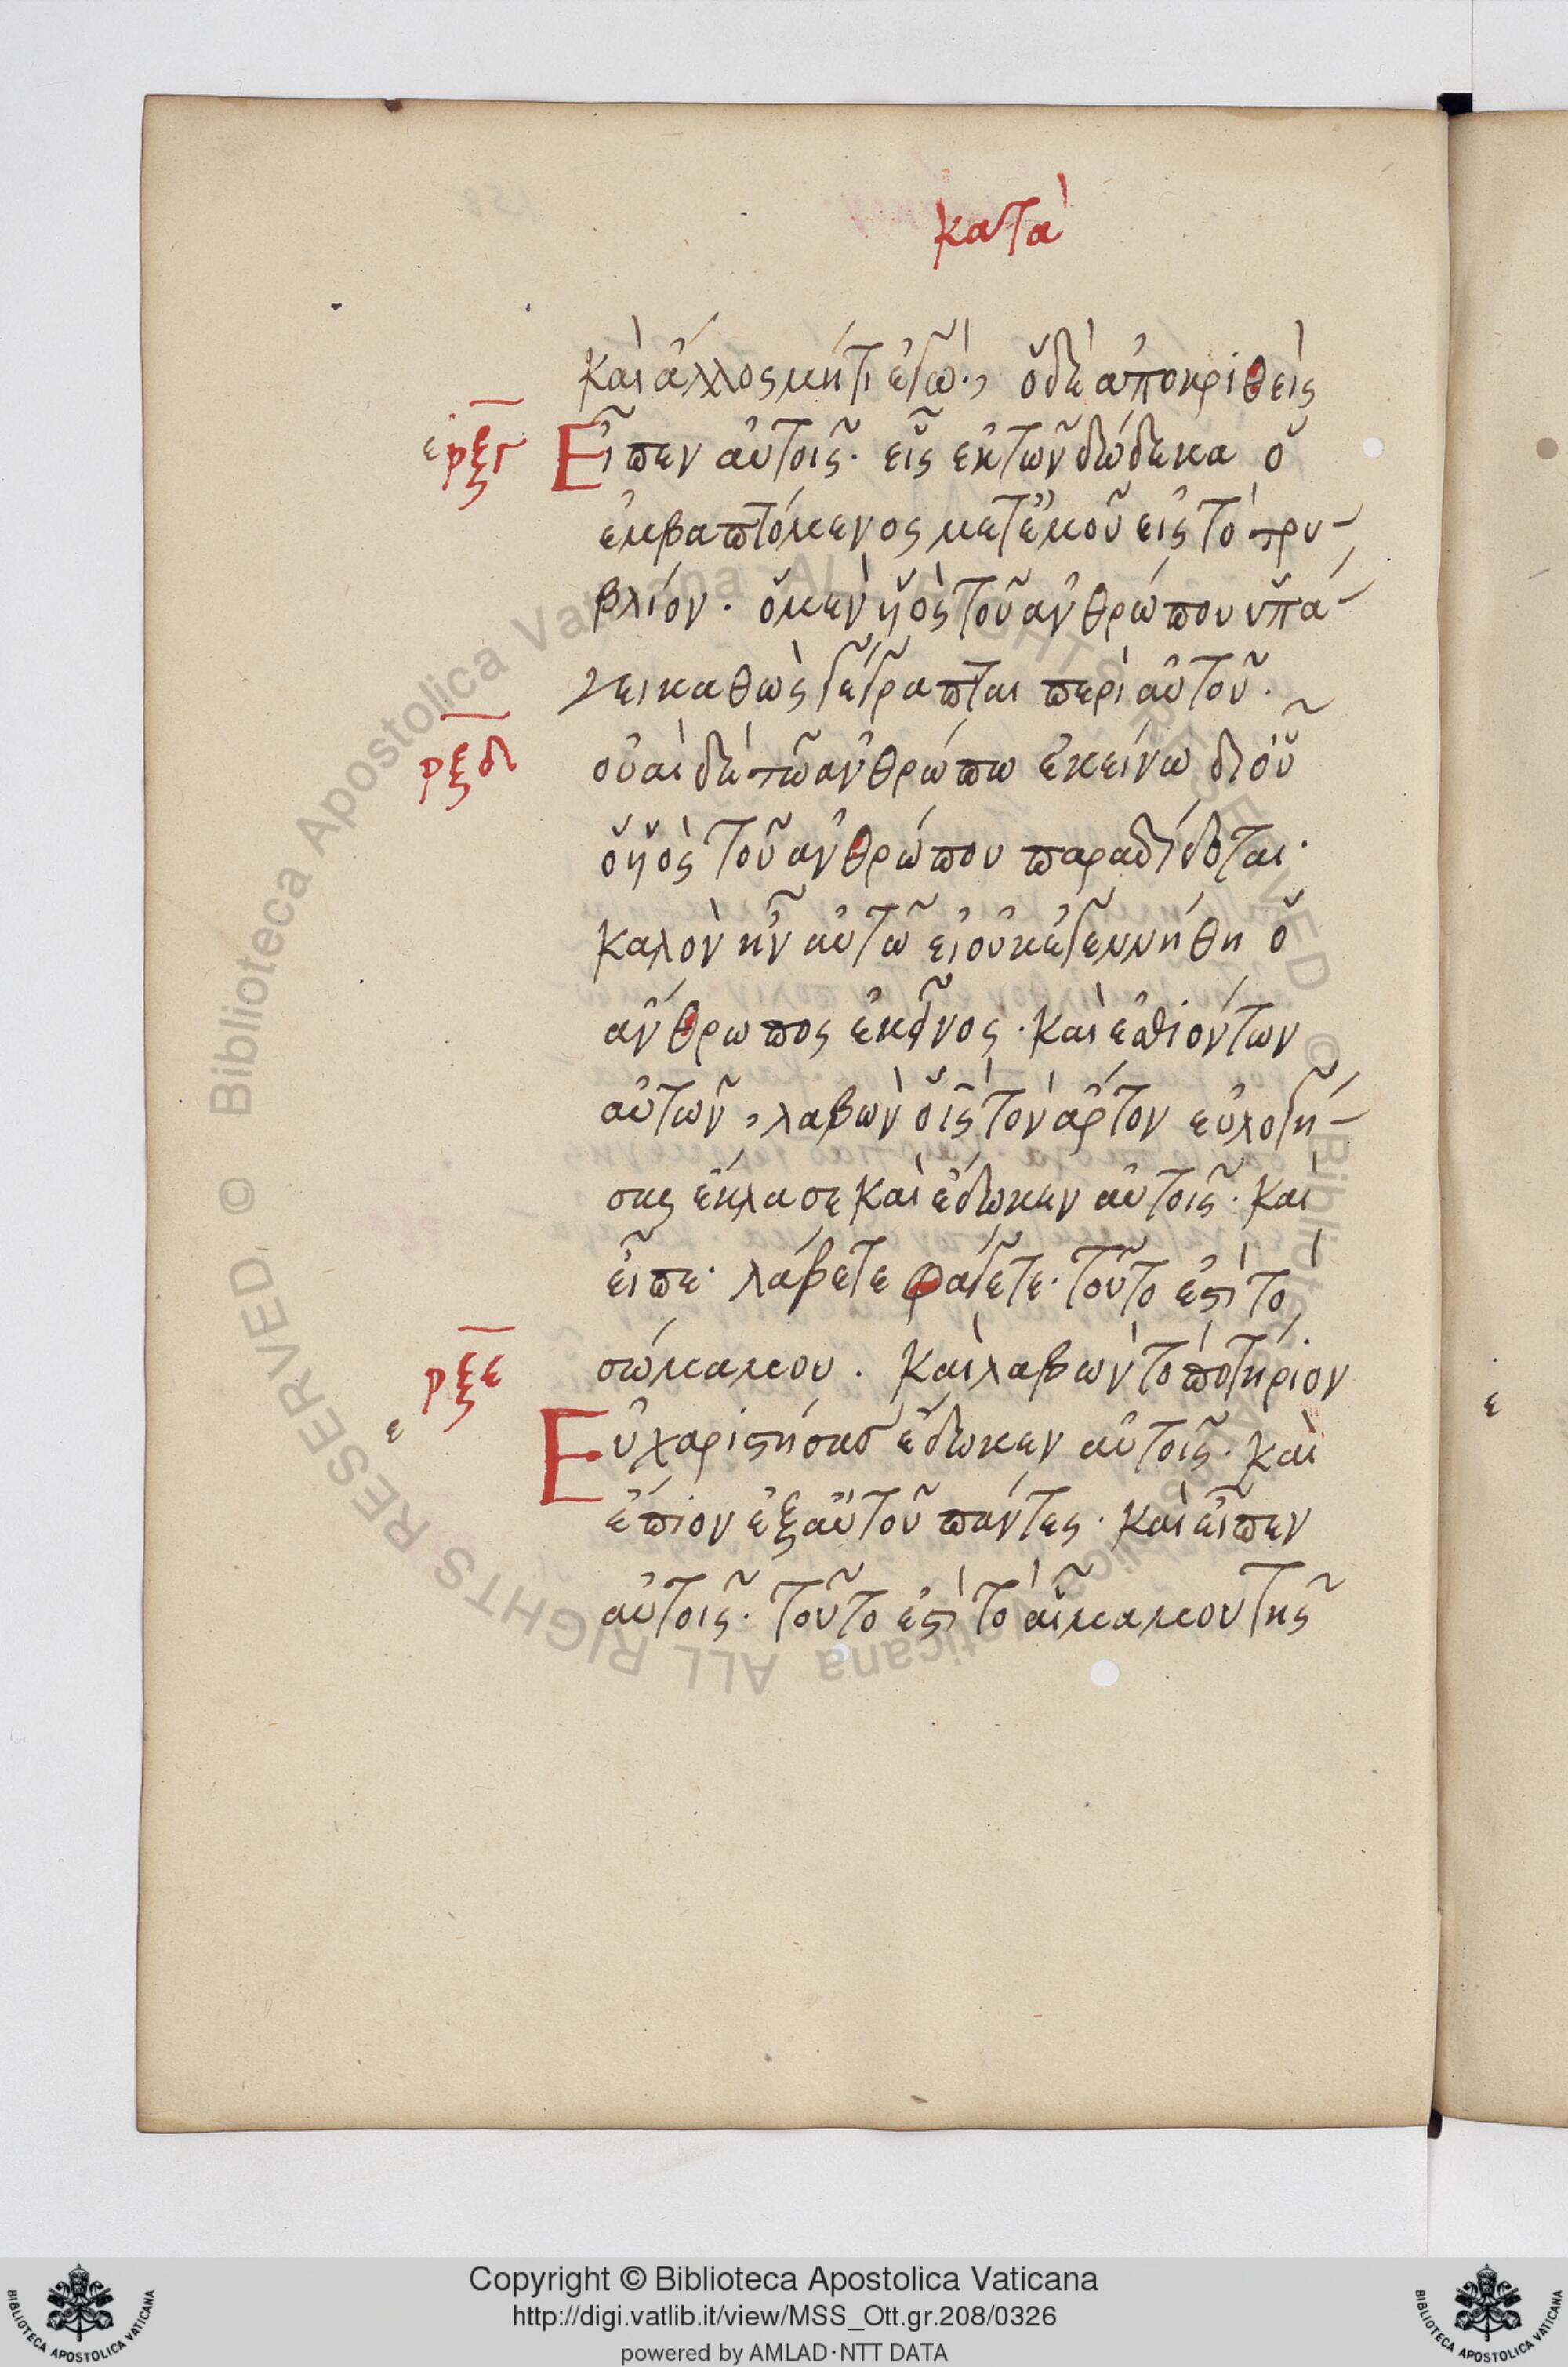 κατὰ
καὶ ἄλλος μή τι ἐγὼ· ὁ δὲ ἀποκριθεὶς
ε ρξγ Εἶπεν αὐτοῖς· εἷς ἐκ τῶν δώδεκα ὁ
ἐμβαπτόμενος μετ ἐμοῦ εἰς τὸ τρυ-
βλίον· ὁ μὲν ὑὸς τοῦ ἀνθρώπου ὑπά-
γει καθὼς γέγραπται περὶ αὐτοῦ·
ρξδ οὐαὶ δὲ τῶ ἀνθρώπω ἐκείνω δι οὗ
ὁ ὑὸς τοῦ ἀνθρώπου παραδίδοται·
καλὸν ἦν αὐτῶ εἰ οὐκ ἐγεννήθη ὁ
ἄνθρωπος ἐκεῖνος· καὶ ἐσθιόντων
αὐτῶν, λαβὼν ὁ ις τὸν ἄρτον εὐλογή-
σας ἔκλασε καὶ ἔδωκεν αὐτοῖς· καὶ
εἶπε· λάβετε φάγετε· τοῦτο ἐστὶ τὸ
σῶμα μου· καὶ λαβὼν τὸ ποτήριον
ρξε
ε Εὐχαριστήσασ ἔδωκεν αὐτοῖς· καὶ
ἔπιον ἐξ αὐτοῦ πάντες· καὶ εἶπεν
αὐτοῖς· τοῦτο ἐστὶ τὸ αἷμα μου τῆς
ε
© Biblioteca Apostolica Vaticana ALL RIGHTS RESERVED © Biblioteca Apostolica Vaticana ALL RIGHTS RESERVED
Copyright © Biblioteca Apostolica Vaticana
http://digi.vatlib.it/view/MSS_Ott.gr.208/0326
powered by AMLAD·NTT DATA
BIBLIOTECA APOSTOLICA VATICANA
BIBLIOTECA APOSTOLICA VATICANA